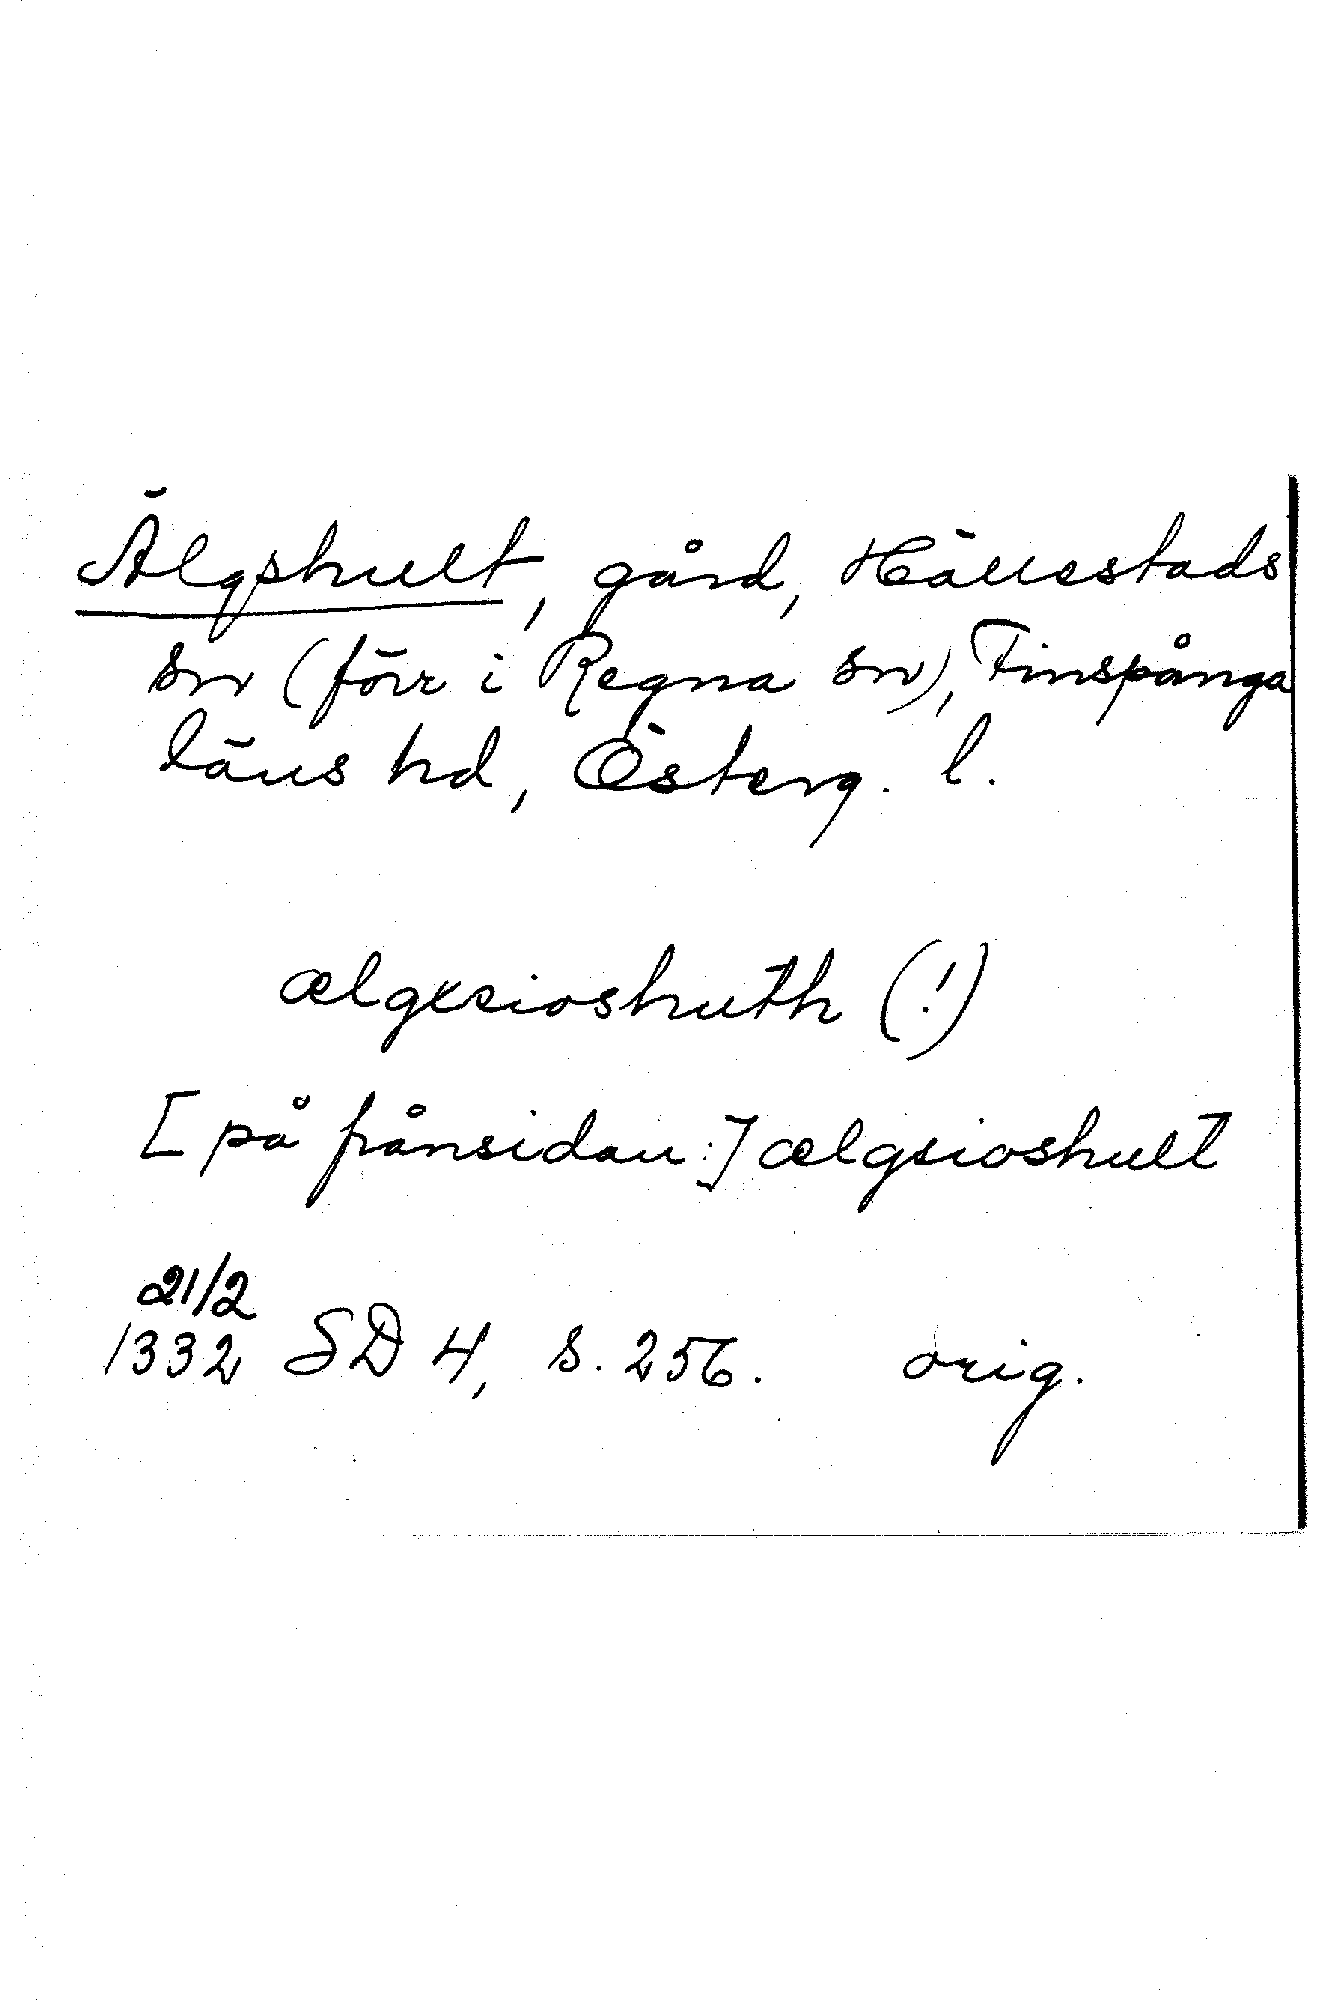 Älgshult, gård, Hällestads
sn (förr i Regna sn), Finspånga
läns hd, Österg. l.
ælgxsioshuth (!)
[på frånsidan:] ælgsioshult
21/2
1332 SD 4, s. 256. orig.